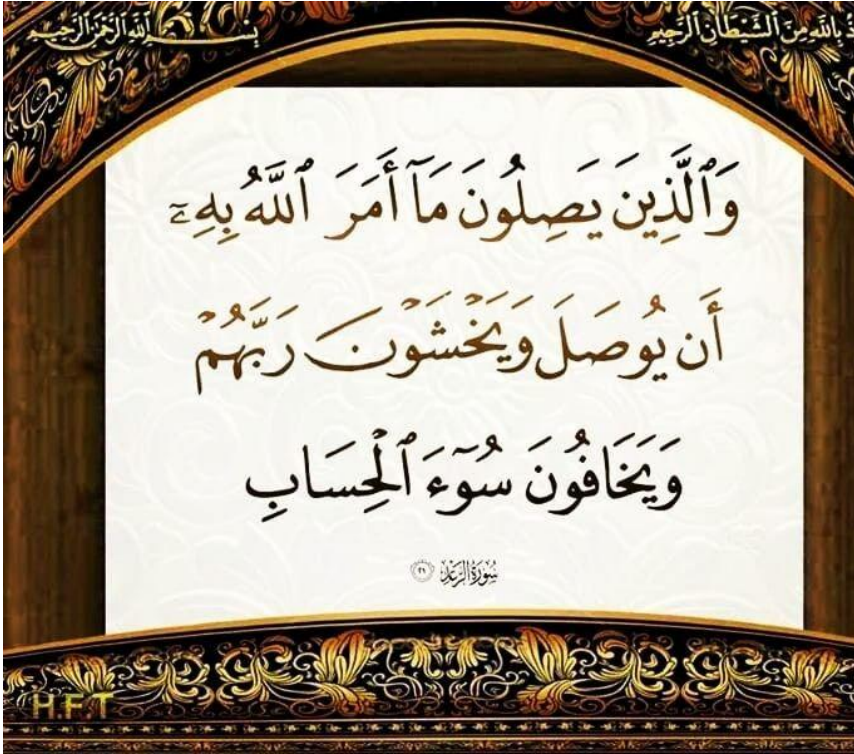 ذُ بِاللَّهِ مِنَ الشَّيْطَانِ الرَّجِيمِ
بِسْمِ اللَّهِ الرَّحْمَٰنِ الرَّحِيمِ
وَٱلَّذِينَ يَصِلُونَ مَآ أَمَرَ ٱللَّهُ بِهِۦٓ
أَن يُوصَلَ وَيَخْشَوْنَ رَبَّهُمْ
وَيَخَافُونَ سُوٓءَ ٱلْحِسَابِ
سُورَةُ الرَّعْدِ ٢١
H.F.T